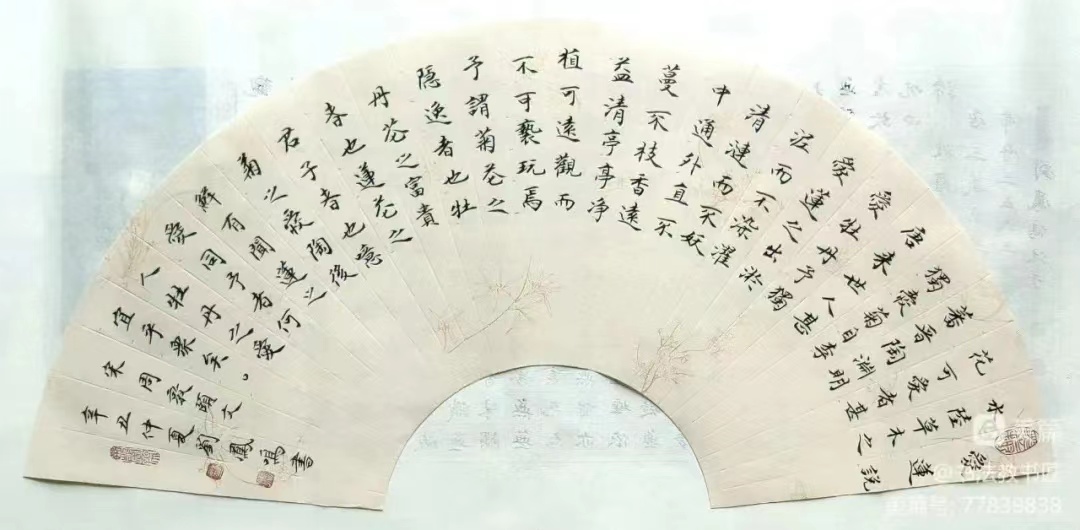 愛蓮說
水陸草木之
花可愛者甚
蕃晉陶淵明
獨愛菊自李
唐來世人甚
愛牡丹予獨
愛蓮之出淤
泥而不染濯
清漣而不妖
中通外直不
蔓不枝香遠
益清亭亭净
植可遠觀而
不可褻玩焉
予謂菊花之
隱逸者也牡
丹花之富貴
者也蓮花之
君子者也噫
菊之愛陶後
鮮有聞蓮之
愛同予者何
人牡丹之愛
宜乎眾矣。
宋周敦頤文
辛丑仲夏劉鳳鳴書
美篇
@书法教书匠
美篇号: 77839838